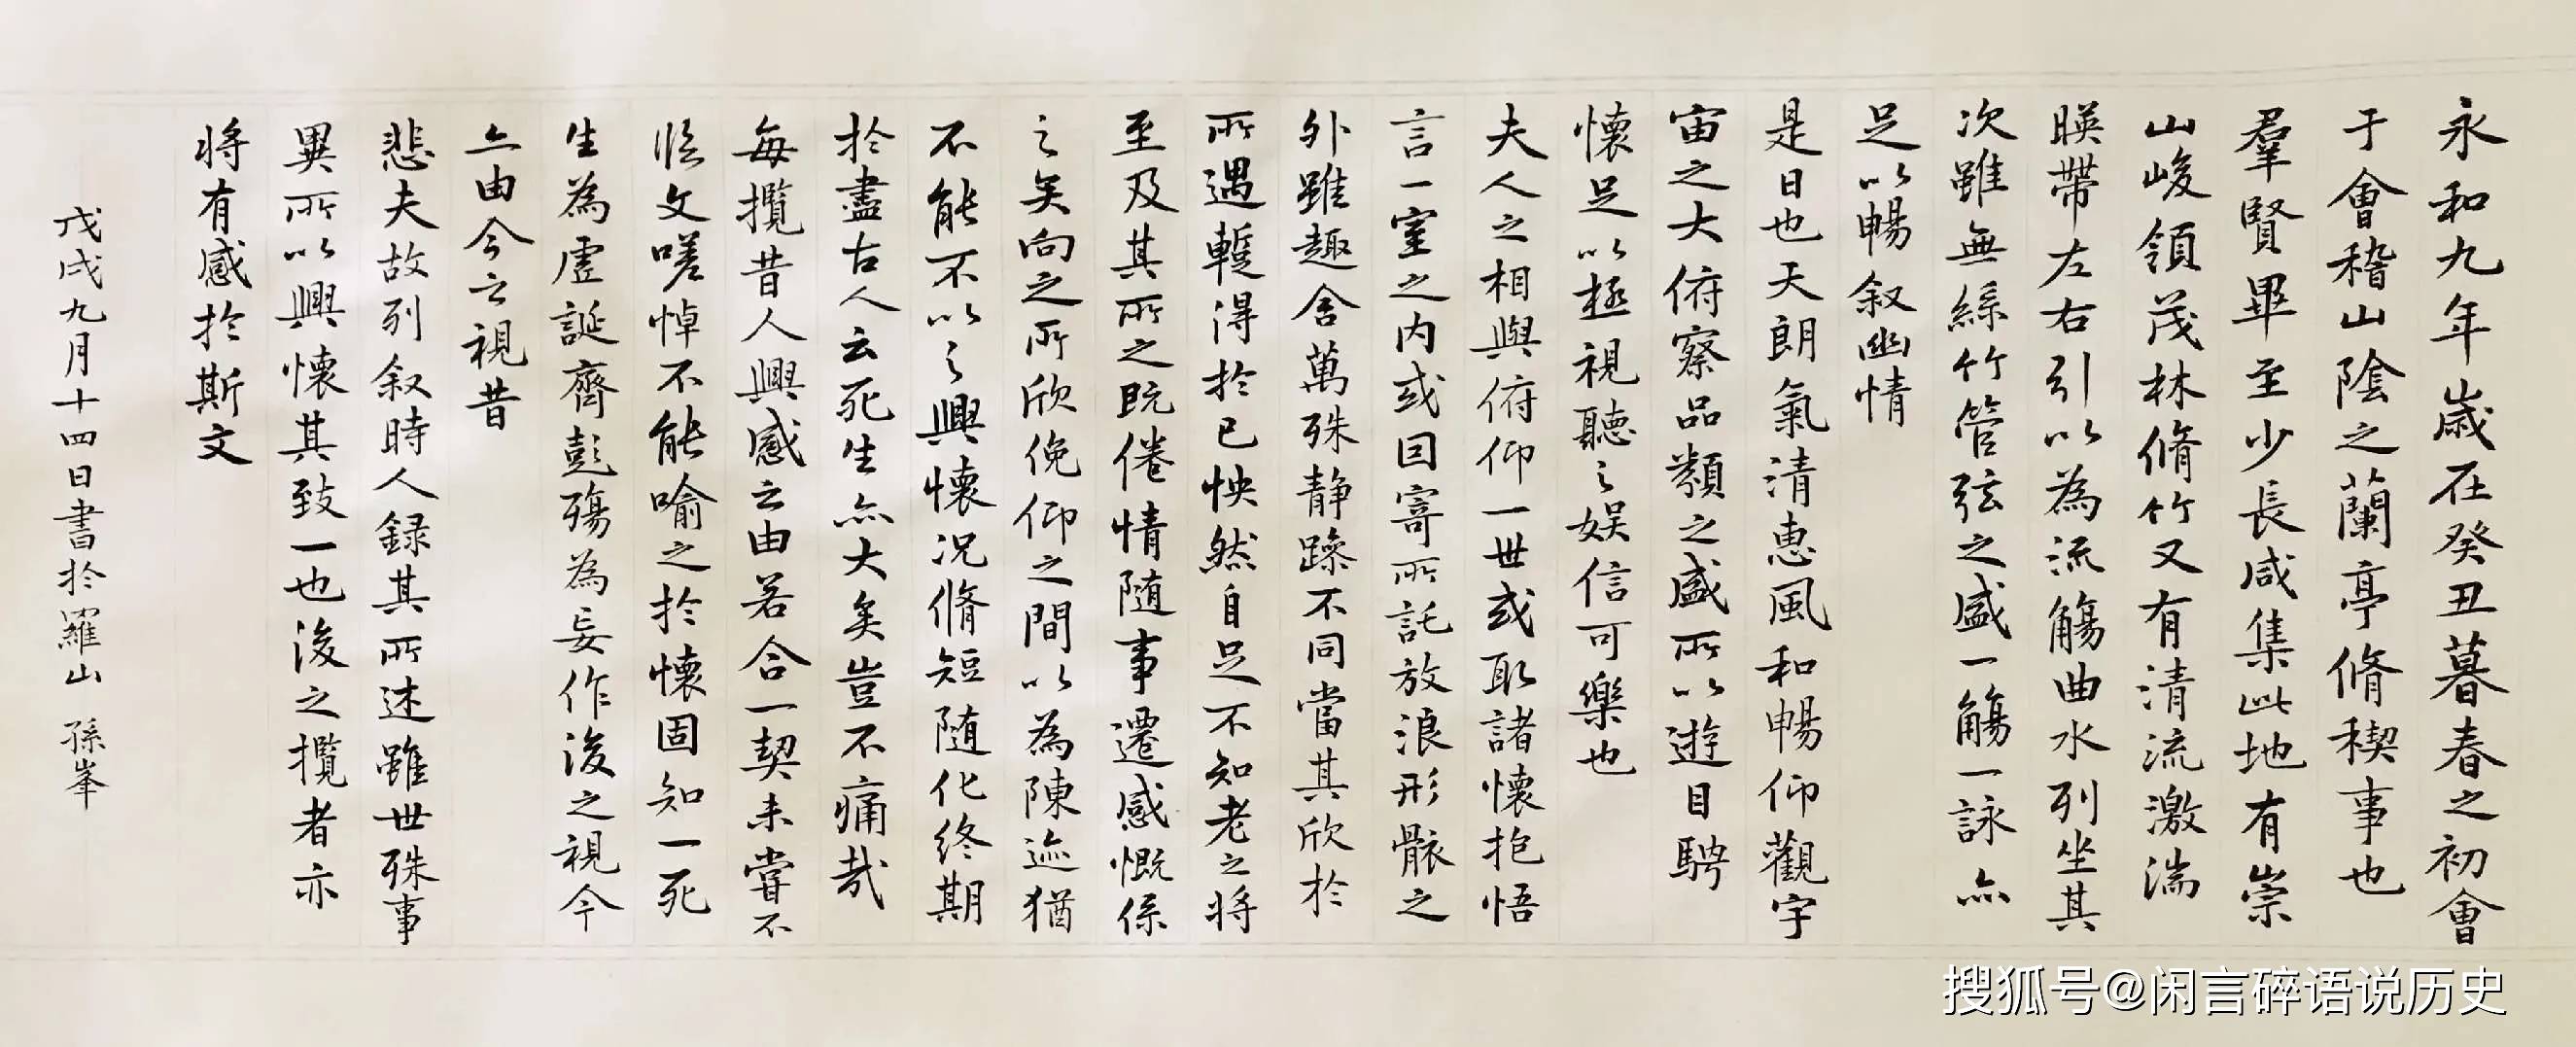 永和九年歲在癸丑暮春之初會
于會稽山陰之蘭亭脩稧事也
羣賢畢至少長咸集此地有崇
山峻領茂林脩竹又有清流激湍
暎帶左右引以為流觴曲水列坐其
次雖無絲竹管弦之盛一觴一詠亦
足以暢叙幽情
是日也天朗氣清惠風和暢仰觀宇
宙之大俯察品類之盛所以遊目騁
懷足以極視聽之娛信可樂也
夫人之相與俯仰一世或取諸懷抱悟
言一室之內或因寄所託放浪形骸之
外雖趣舍萬殊静躁不同當其欣於
所遇蹔得於己怏然自足不知老之將
至及其所之既倦情随事遷感慨係
之矣向之所欣俛仰之間以為陳迹猶
不能不以之興懷況脩短随化終期
於盡古人云死生亦大矣豈不痛哉
每攬昔人興感之由若合一契未嘗不
臨文嗟悼不能喻之於懷固知一死
生為虛誕齊彭殤為妄作後之視今
亦由今之視昔
悲夫故列叙時人録其所述雖世殊事
異所以興懷其致一也後之攬者亦
將有感於斯文
戊戌九月十四日書於羅山 孫峯
搜狐号@闲言碎语说历史